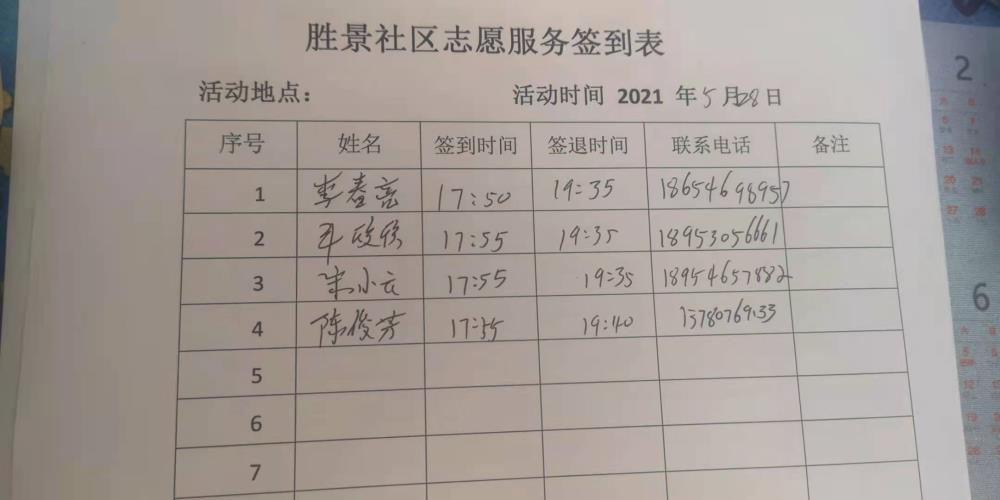 胜景社区志愿服务签到表
活动地点: 活动时间 2021 年5月28日
序号 姓名 签到时间 签退时间 联系电话 备注
1 李春亮 17:50 19:35 18654698957
2 17:55 19:35 18953056661
3 朱小云 17:55 19:35 18954657882
4 陈俊芳 17:55 19:40
5
6
7
2
6